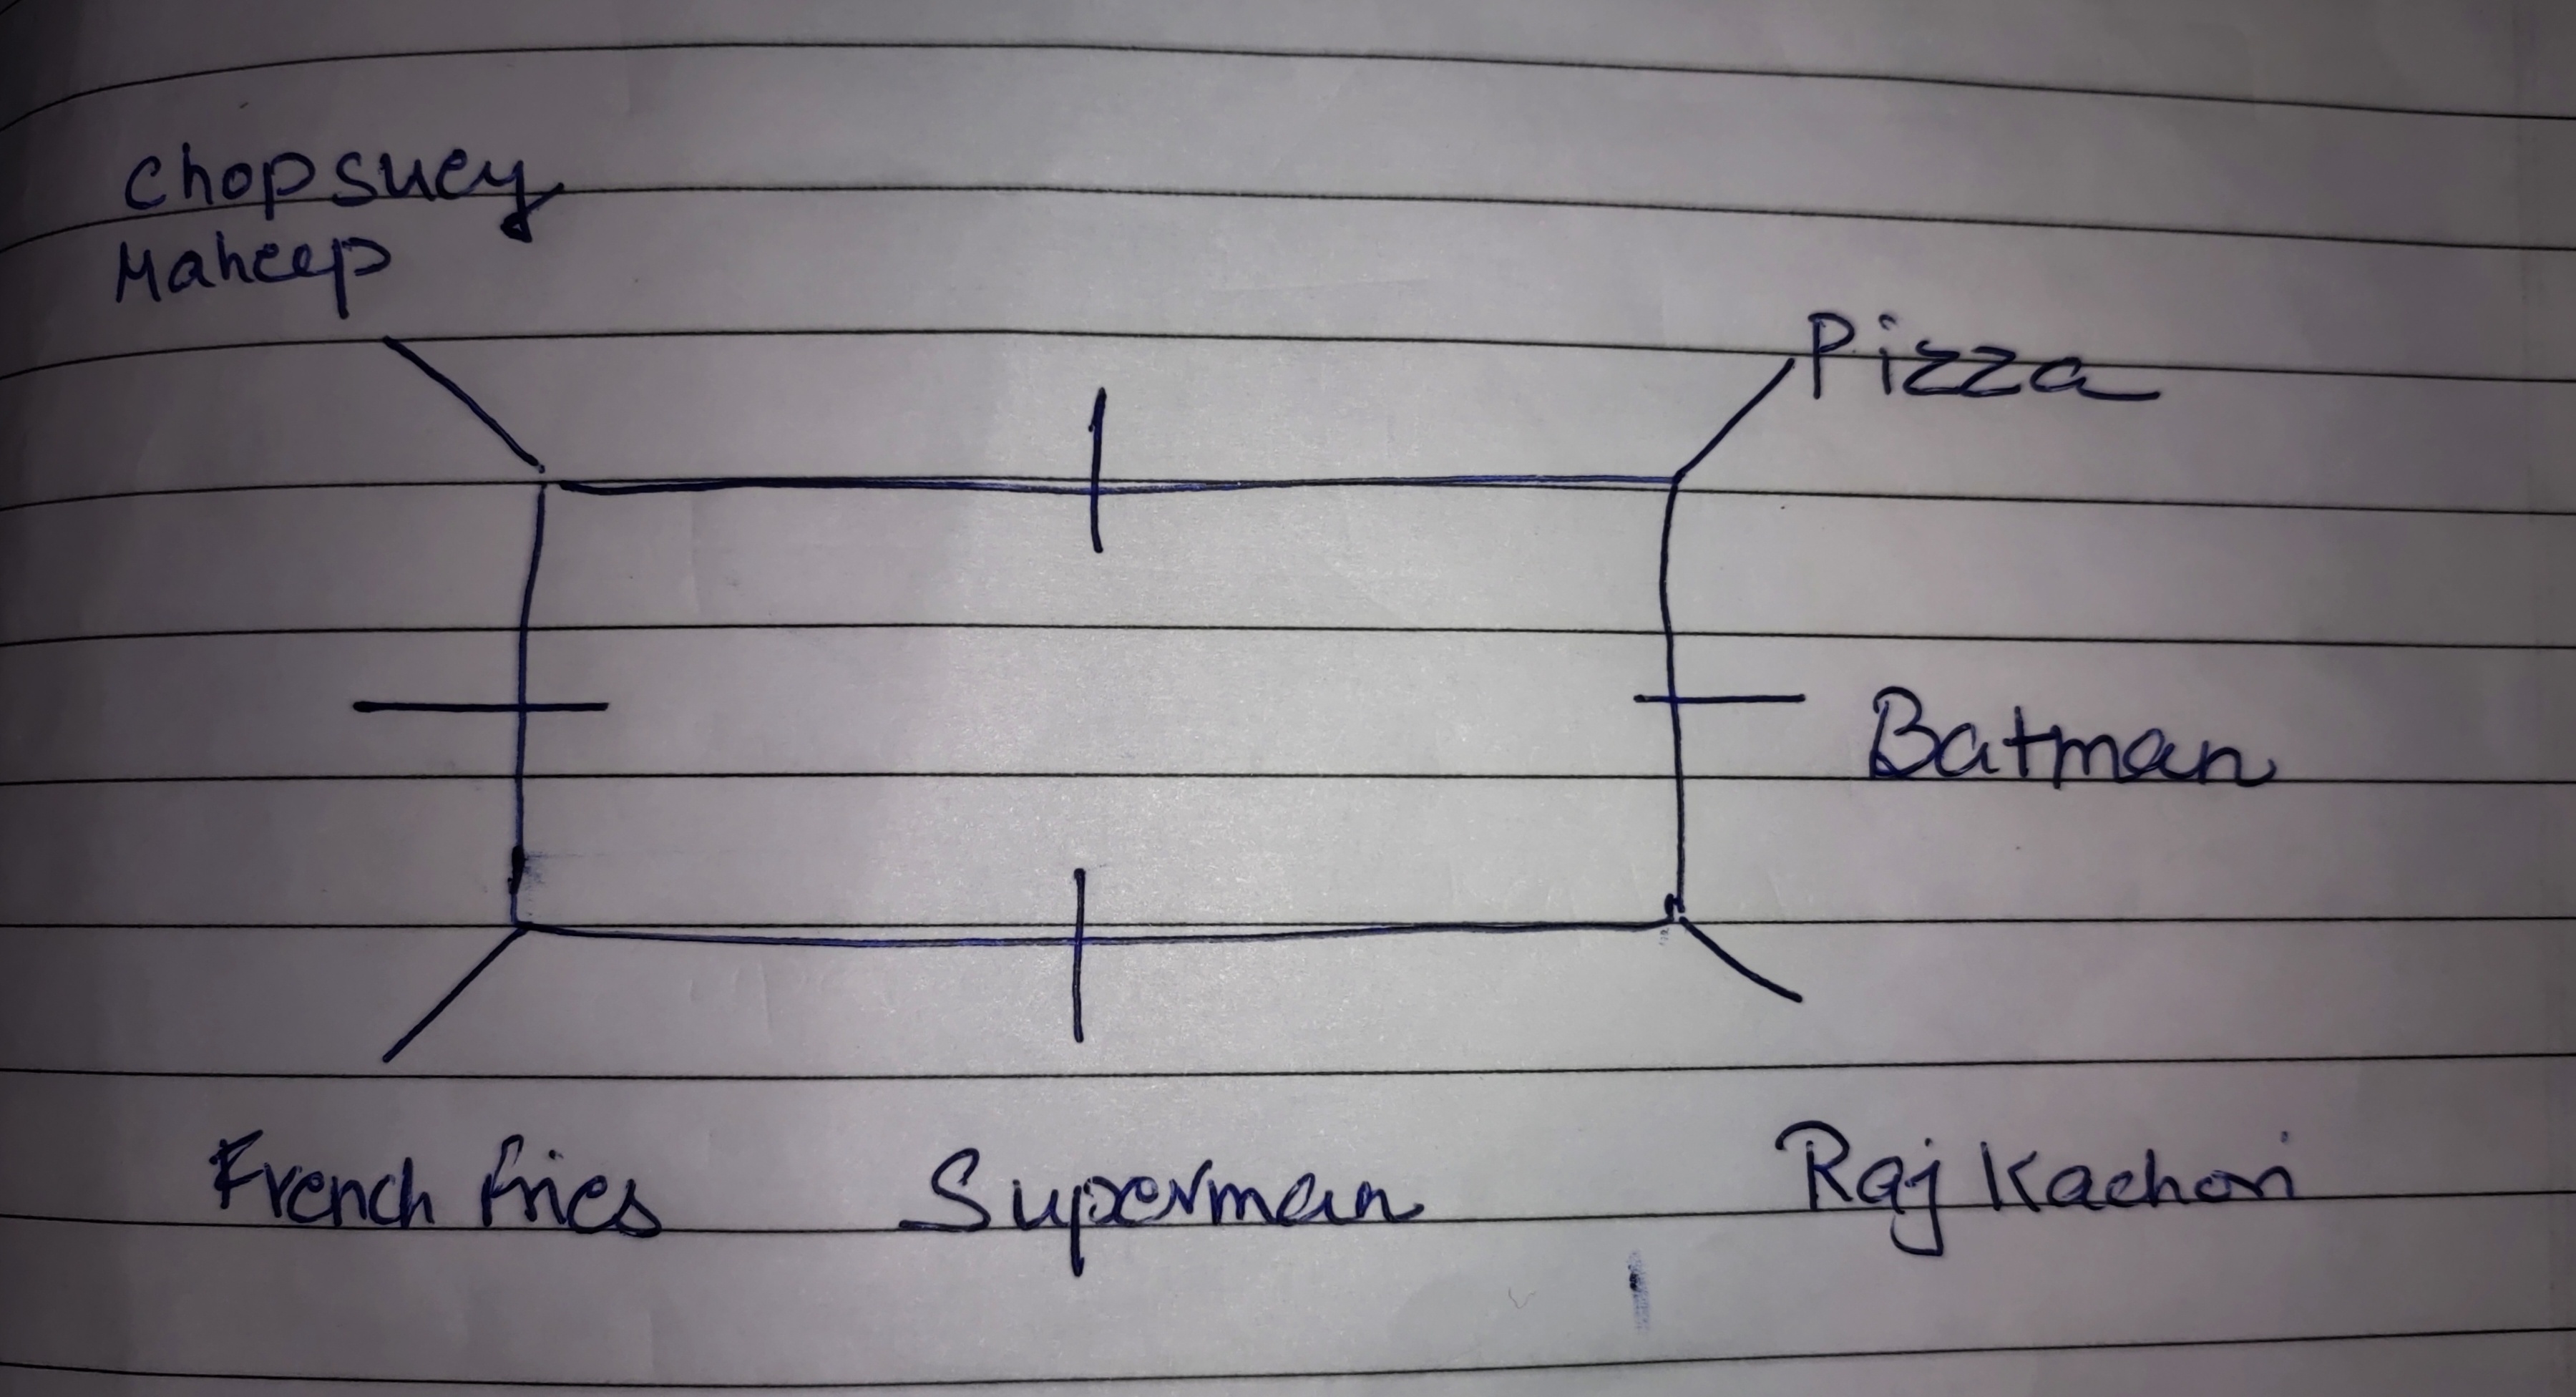 Chopsuey
Maheep
Pizza
Batman
French fries
Superman
Raj Kachori